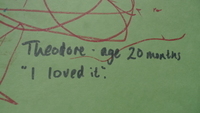 Theodore - age 20 months
"I loved it".